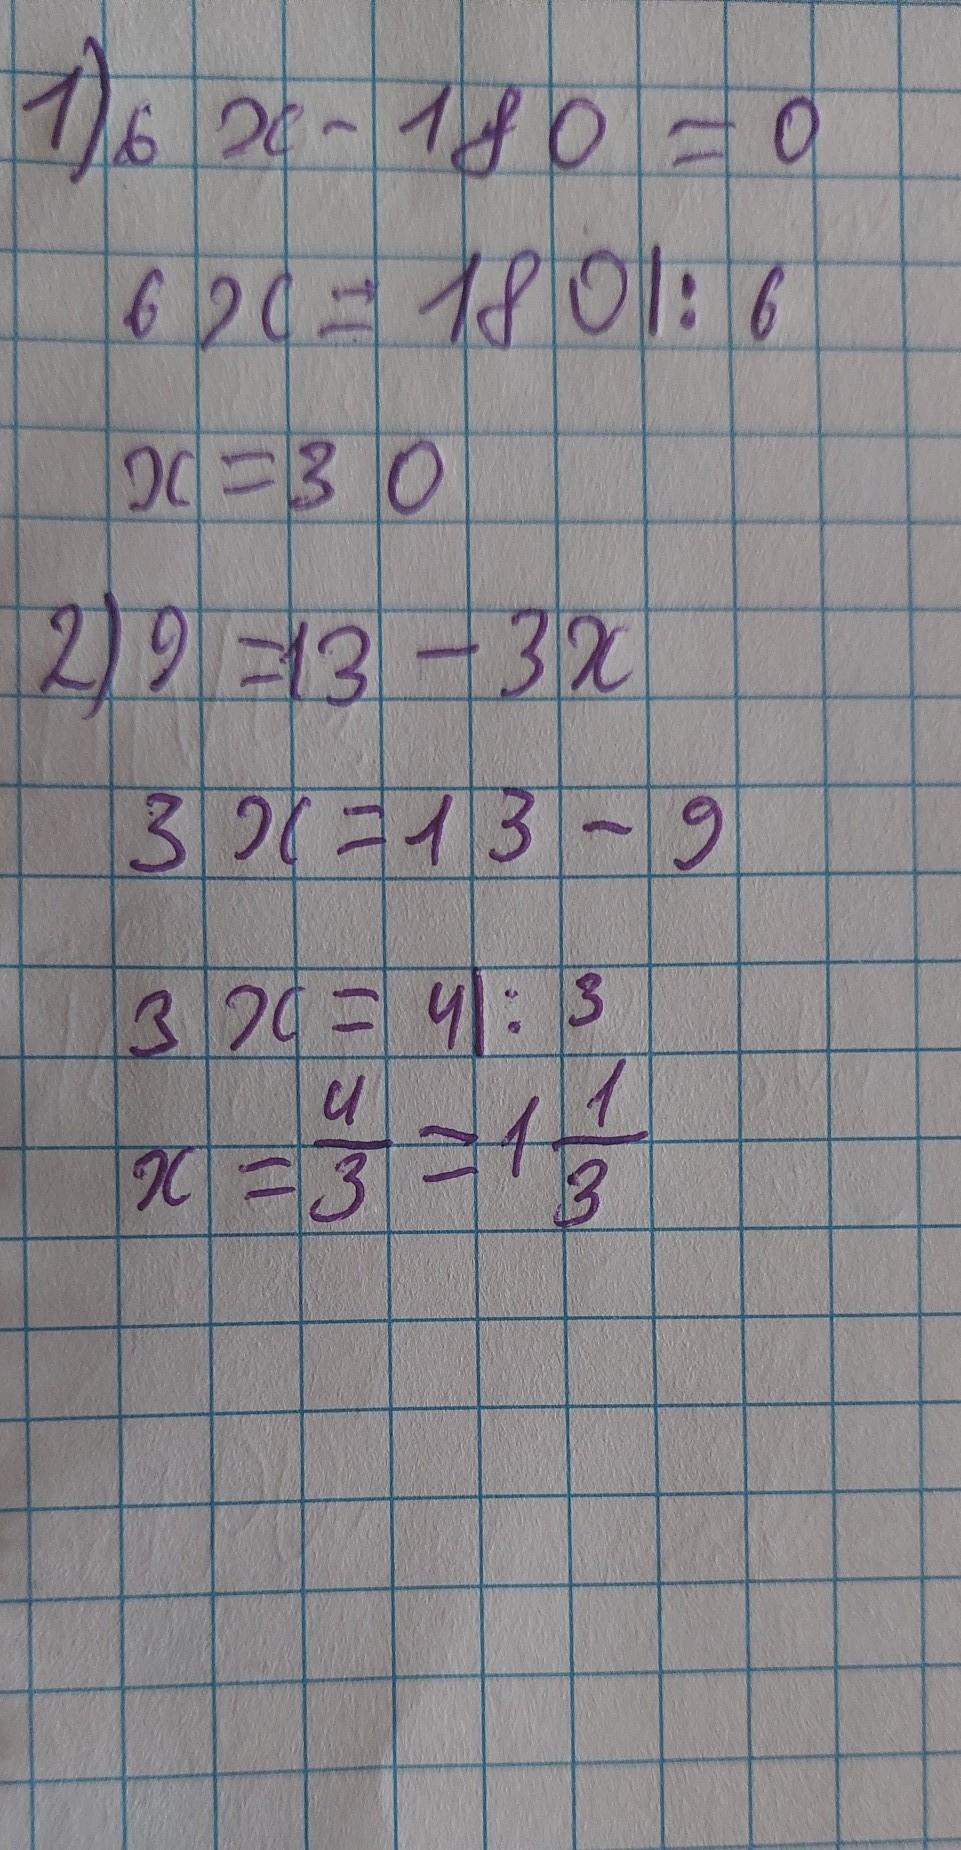 1) 6x - 180 = 0
6x = 180 |: 6
x = 30
2) 9 = 13 - 3x
3x = 13 - 9
3x = 4 |: 3
x = 4/3 = 1 1/3